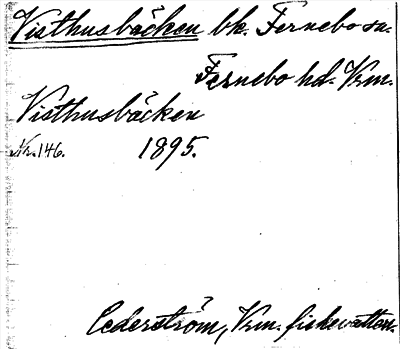 Visthusbäcken bk. Fernebo sn.
Fernebo hd. Vrm.
Visthusbäcken
Nr. 146. 1895.
Cederström, Vrm. fiskevatten.